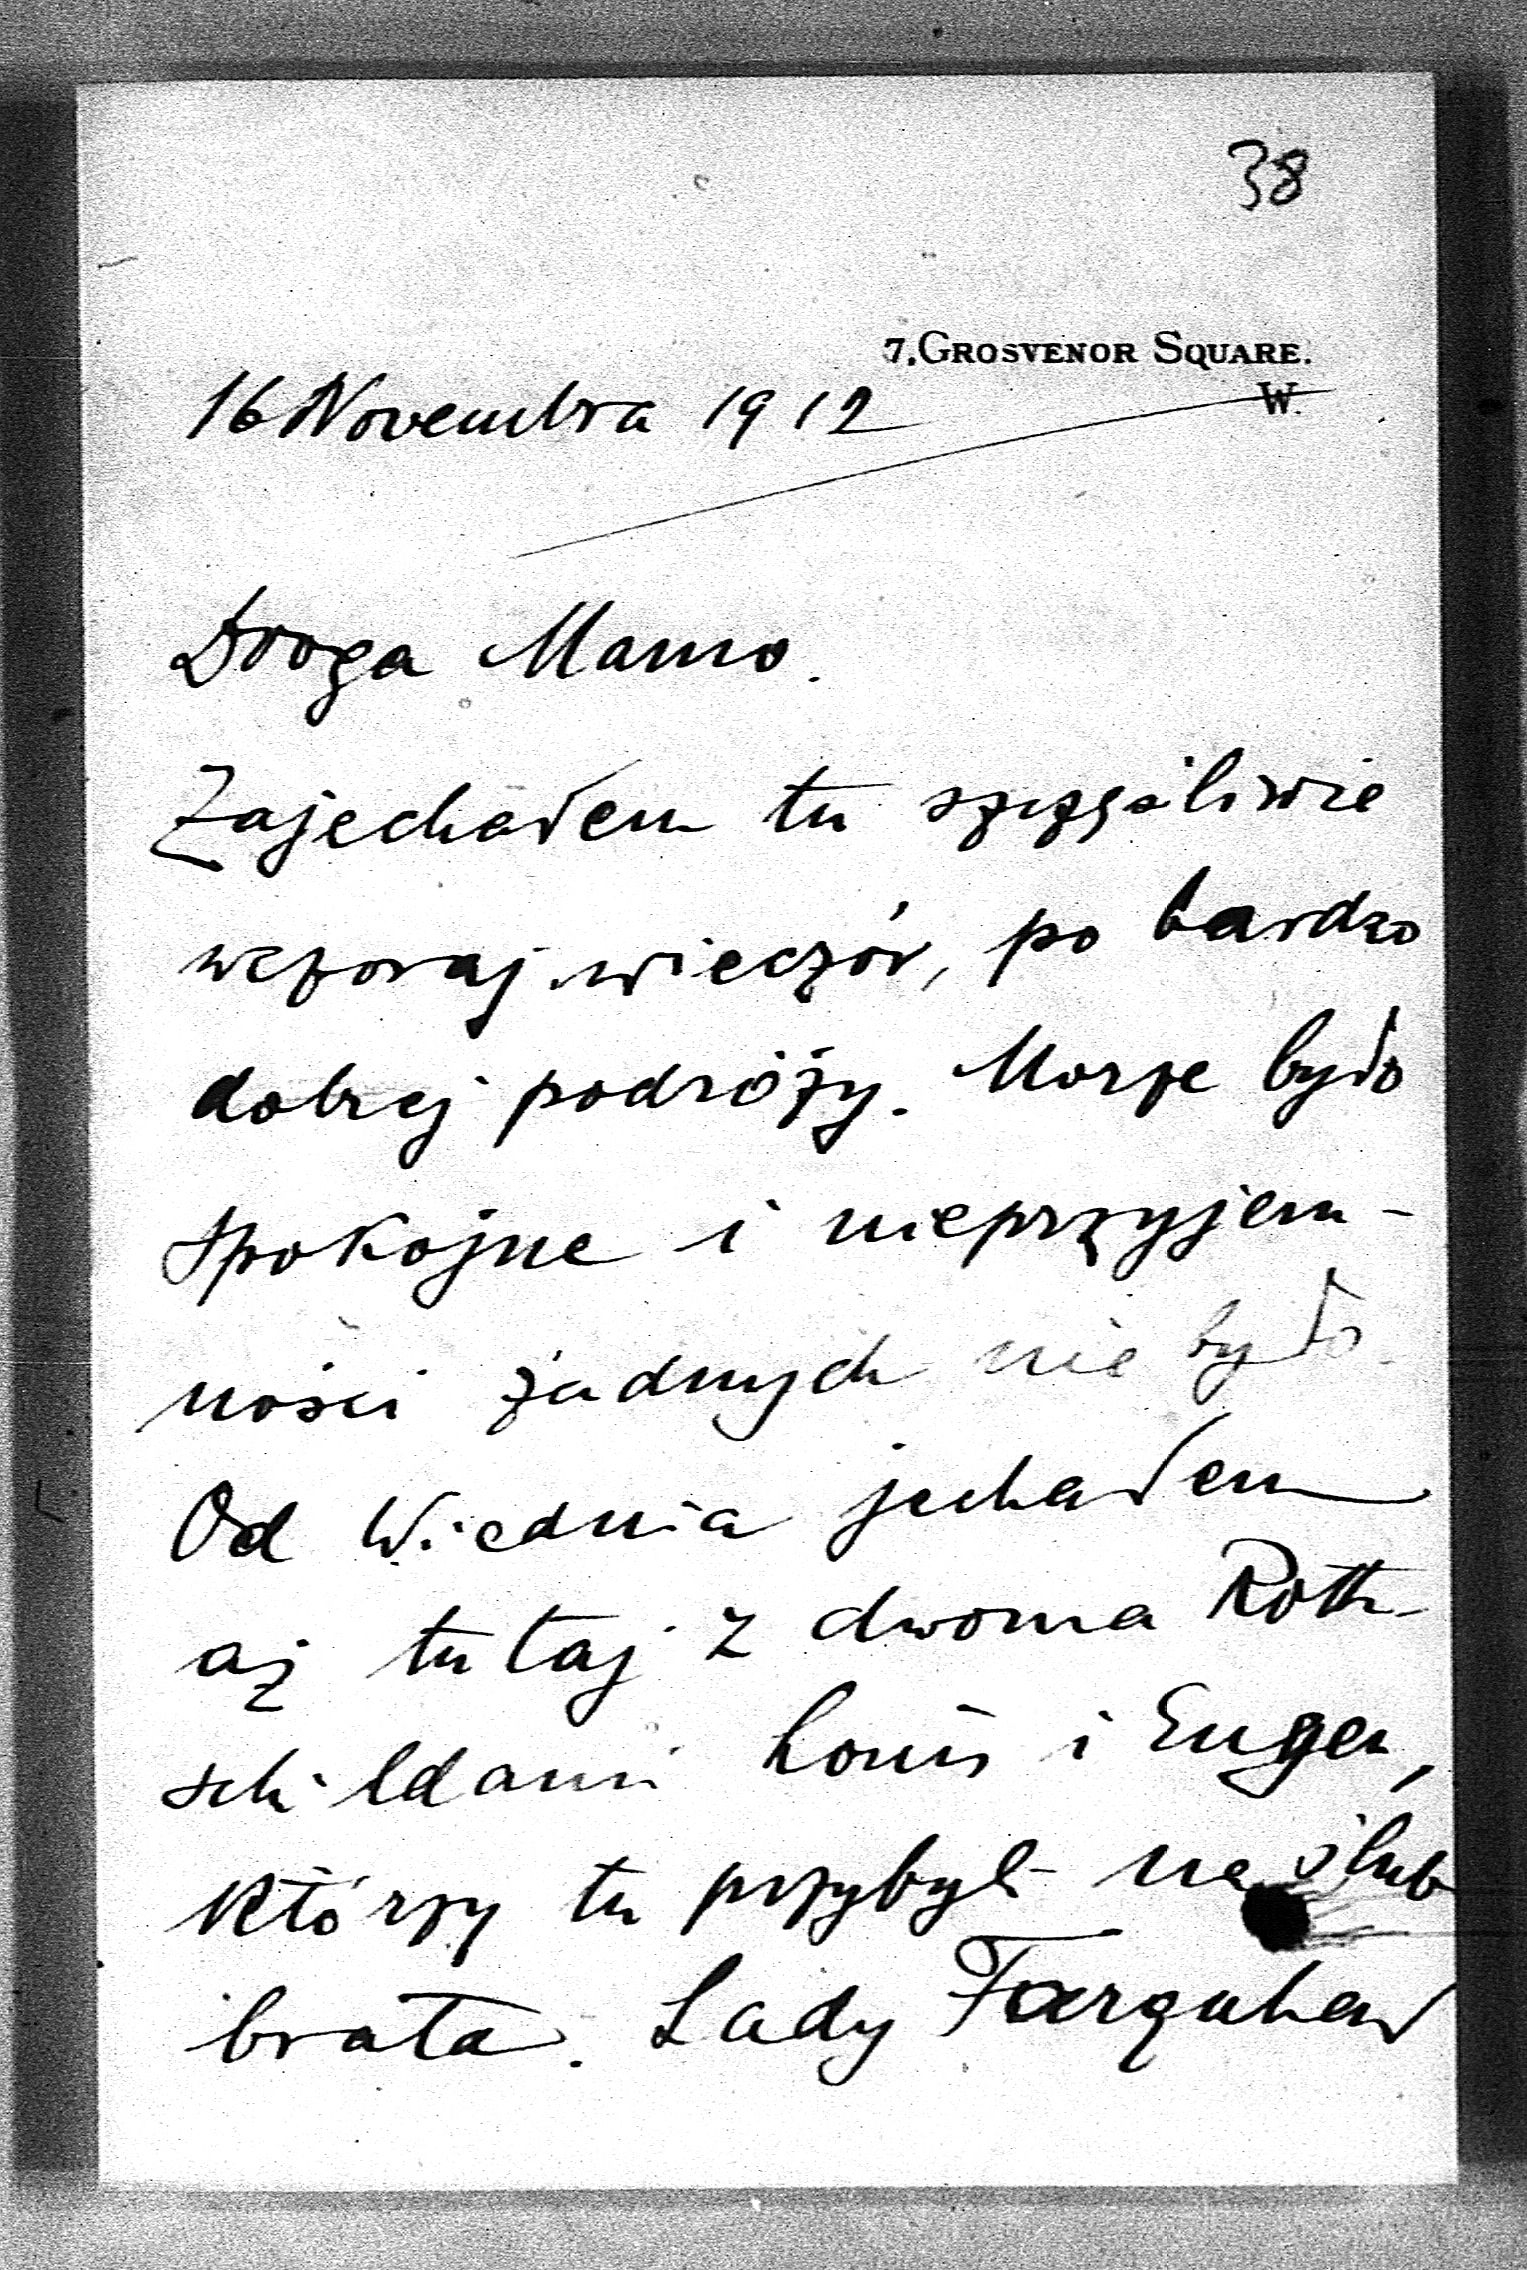 38
7, GROSVENOR SQUARE.
W.
16 Novembra 1912
Droga Mamo.
Zajechałem tu szczęśliwie
wczoraj wieczór, po bardzo
dobrej podróży. Morze było
spokojne i nieprzyjem-
ności żadnych nie było.
Od Wiednia jechałem
aż tutaj z dwoma Roth-
schildami Louis i Eugen,
którzy tu przybyli na ślub
brata. Lady Farquhar